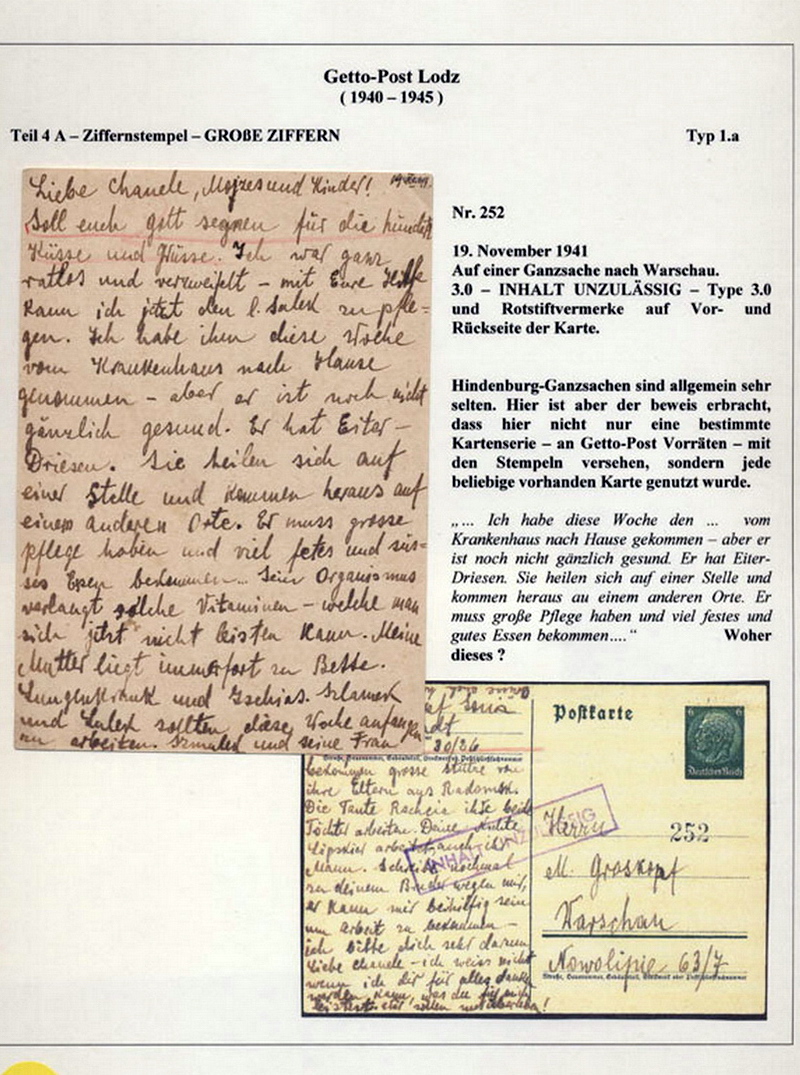 Getto-Post Lodz
( 1940 – 1945 )
Teil 4 A – Ziffernstempel – GROßE ZIFFERN
Typ 1.a
Liebe Chanele, Mojzes und Kinder!
Soll euch gott segnen für die
Küsse und Grüsse. Ich war ganz
ratlos und verzweifelt – mit Eure Hilfe
kann ich jetzt den l. Salek zu pfle=
gen. Ich habe ihm diese Woche
vom Krankenhaus nach Hause
genommen – aber er ist noch nicht
gänzlich gesund. Er hat Eiter-
Driesen. Sie heilen sich auf
einer Stelle und kommen heraus auf
einem anderen Orte. Er muss grosse
pflege haben und viel fetes und
Essen bekommen... Sein Organismus
verlangt solche Vitaminen – welche man
sich jetzt nicht leisten kann. Meine
Mutter liegt immerfort zu Bette.
Lungenkrank und Szlamek
und Salek sollten diese Woche anfangen
zu arbeiten. und seine Frau
Nr. 252
19. November 1941
Auf einer Ganzsache nach Warschau.
3.0 – INHALT UNZULÄSSIG – Type 3.0
und Rotstiftvermerke auf Vor- und
Rückseite der Karte.
Hindenburg-Ganzsachen sind allgemein sehr
selten. Hier ist aber der beweis erbracht,
dass hier nicht nur eine bestimmte
Kartenserie – an Getto-Post Vorräten – mit
den Stempeln versehen, sondern jede
beliebige vorhanden Karte genutzt wurde.
„… Ich habe diese Woche den … vom
Krankenhaus nach Hause gekommen – aber er
ist noch nicht gänzlich gesund. Er hat Eiter-
Driesen. Sie heilen sich auf einer Stelle und
kommen heraus au einem anderen Orte. Er
muss große Pflege haben und viel festes und
gutes Essen bekommen…." Woher
dieses ?
30/26
bekommen grosse stütze von
ihre Eltern aus Radomsk.
Die Tante Rachela ihre beide
Töchter arbeiten. Deine
Lipskier arbeitet, auch ihr
Mann. nochmal
zu deinem Bruder wegen mir,
er kann mir behilflig sein
um arbeit zu bekommen –
ich bitte dich sehr darum
liebe Chanele – ich weiss nicht
wenn ich dir für alles danke
kann, was du für mich
INHALT UNZULÄSSIG
Postkarte
6 6
Deutsches Reich
Herrn
252
M. Groskopf
Warschau
Nowolipie 63/7
Straße, Hausnummer, Gebäudeteil, Stockwerk oder Postschließfachnummer